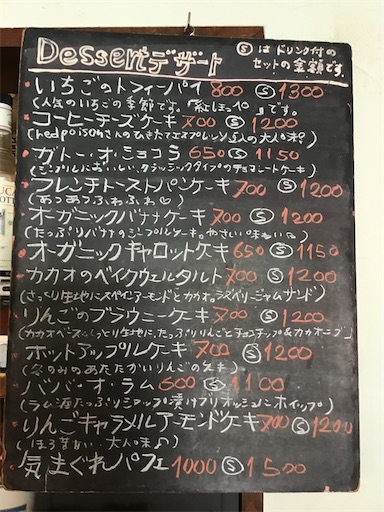 Dessertデザート
Ⓢ は ドリンク付の
セットの金額です。
いちごのトフィーパイ 800 Ⓢ 1300
(人気のいちごの季節です。「紅ほっぺ」です。)
コーヒーチーズケーキ 700 Ⓢ 1200
(redpoisonさんのひきたてエスプレッソ 大人味?)
ガトー・オ・ショコラ 650 Ⓢ 1150
(シンプルにおいしい、クラシックタイプのチョコレートケーキ)
フレンチトーストパンケーキ 700 Ⓢ 1200
(あつあつふわふわ♡)
オーガニックバナナケーキ 700 Ⓢ 1200
(たっぷりバナナのシンプルケーキ。やさしい味わい♡)
オーガニックキャロットケーキ 650 Ⓢ 1150
カカオのベイクウェルタルト 700 Ⓢ 1200
(さっくり生地にスペインアーモンドとカカオ。ラズベリージャムサンド)
りんごのブラウニーケーキ 700 Ⓢ 1200
(カカオベースのしっとり生地に、たっぷりりんごとチョコチップ&カカオニブ)
ホットアップルケーキ 700 Ⓢ 1200
(冬のみのあたたかいりんごのケーキ)
ババ・オ・ラム 600 Ⓢ 1100
(ラム酒たっぷりシロップ漬けブリオッシュにホイップ)
りんごキャラメルアーモンドケーキ 700 Ⓢ 1200
(ほろ苦い、大人味♪)
気まぐれパフェ 1000 Ⓢ 1500